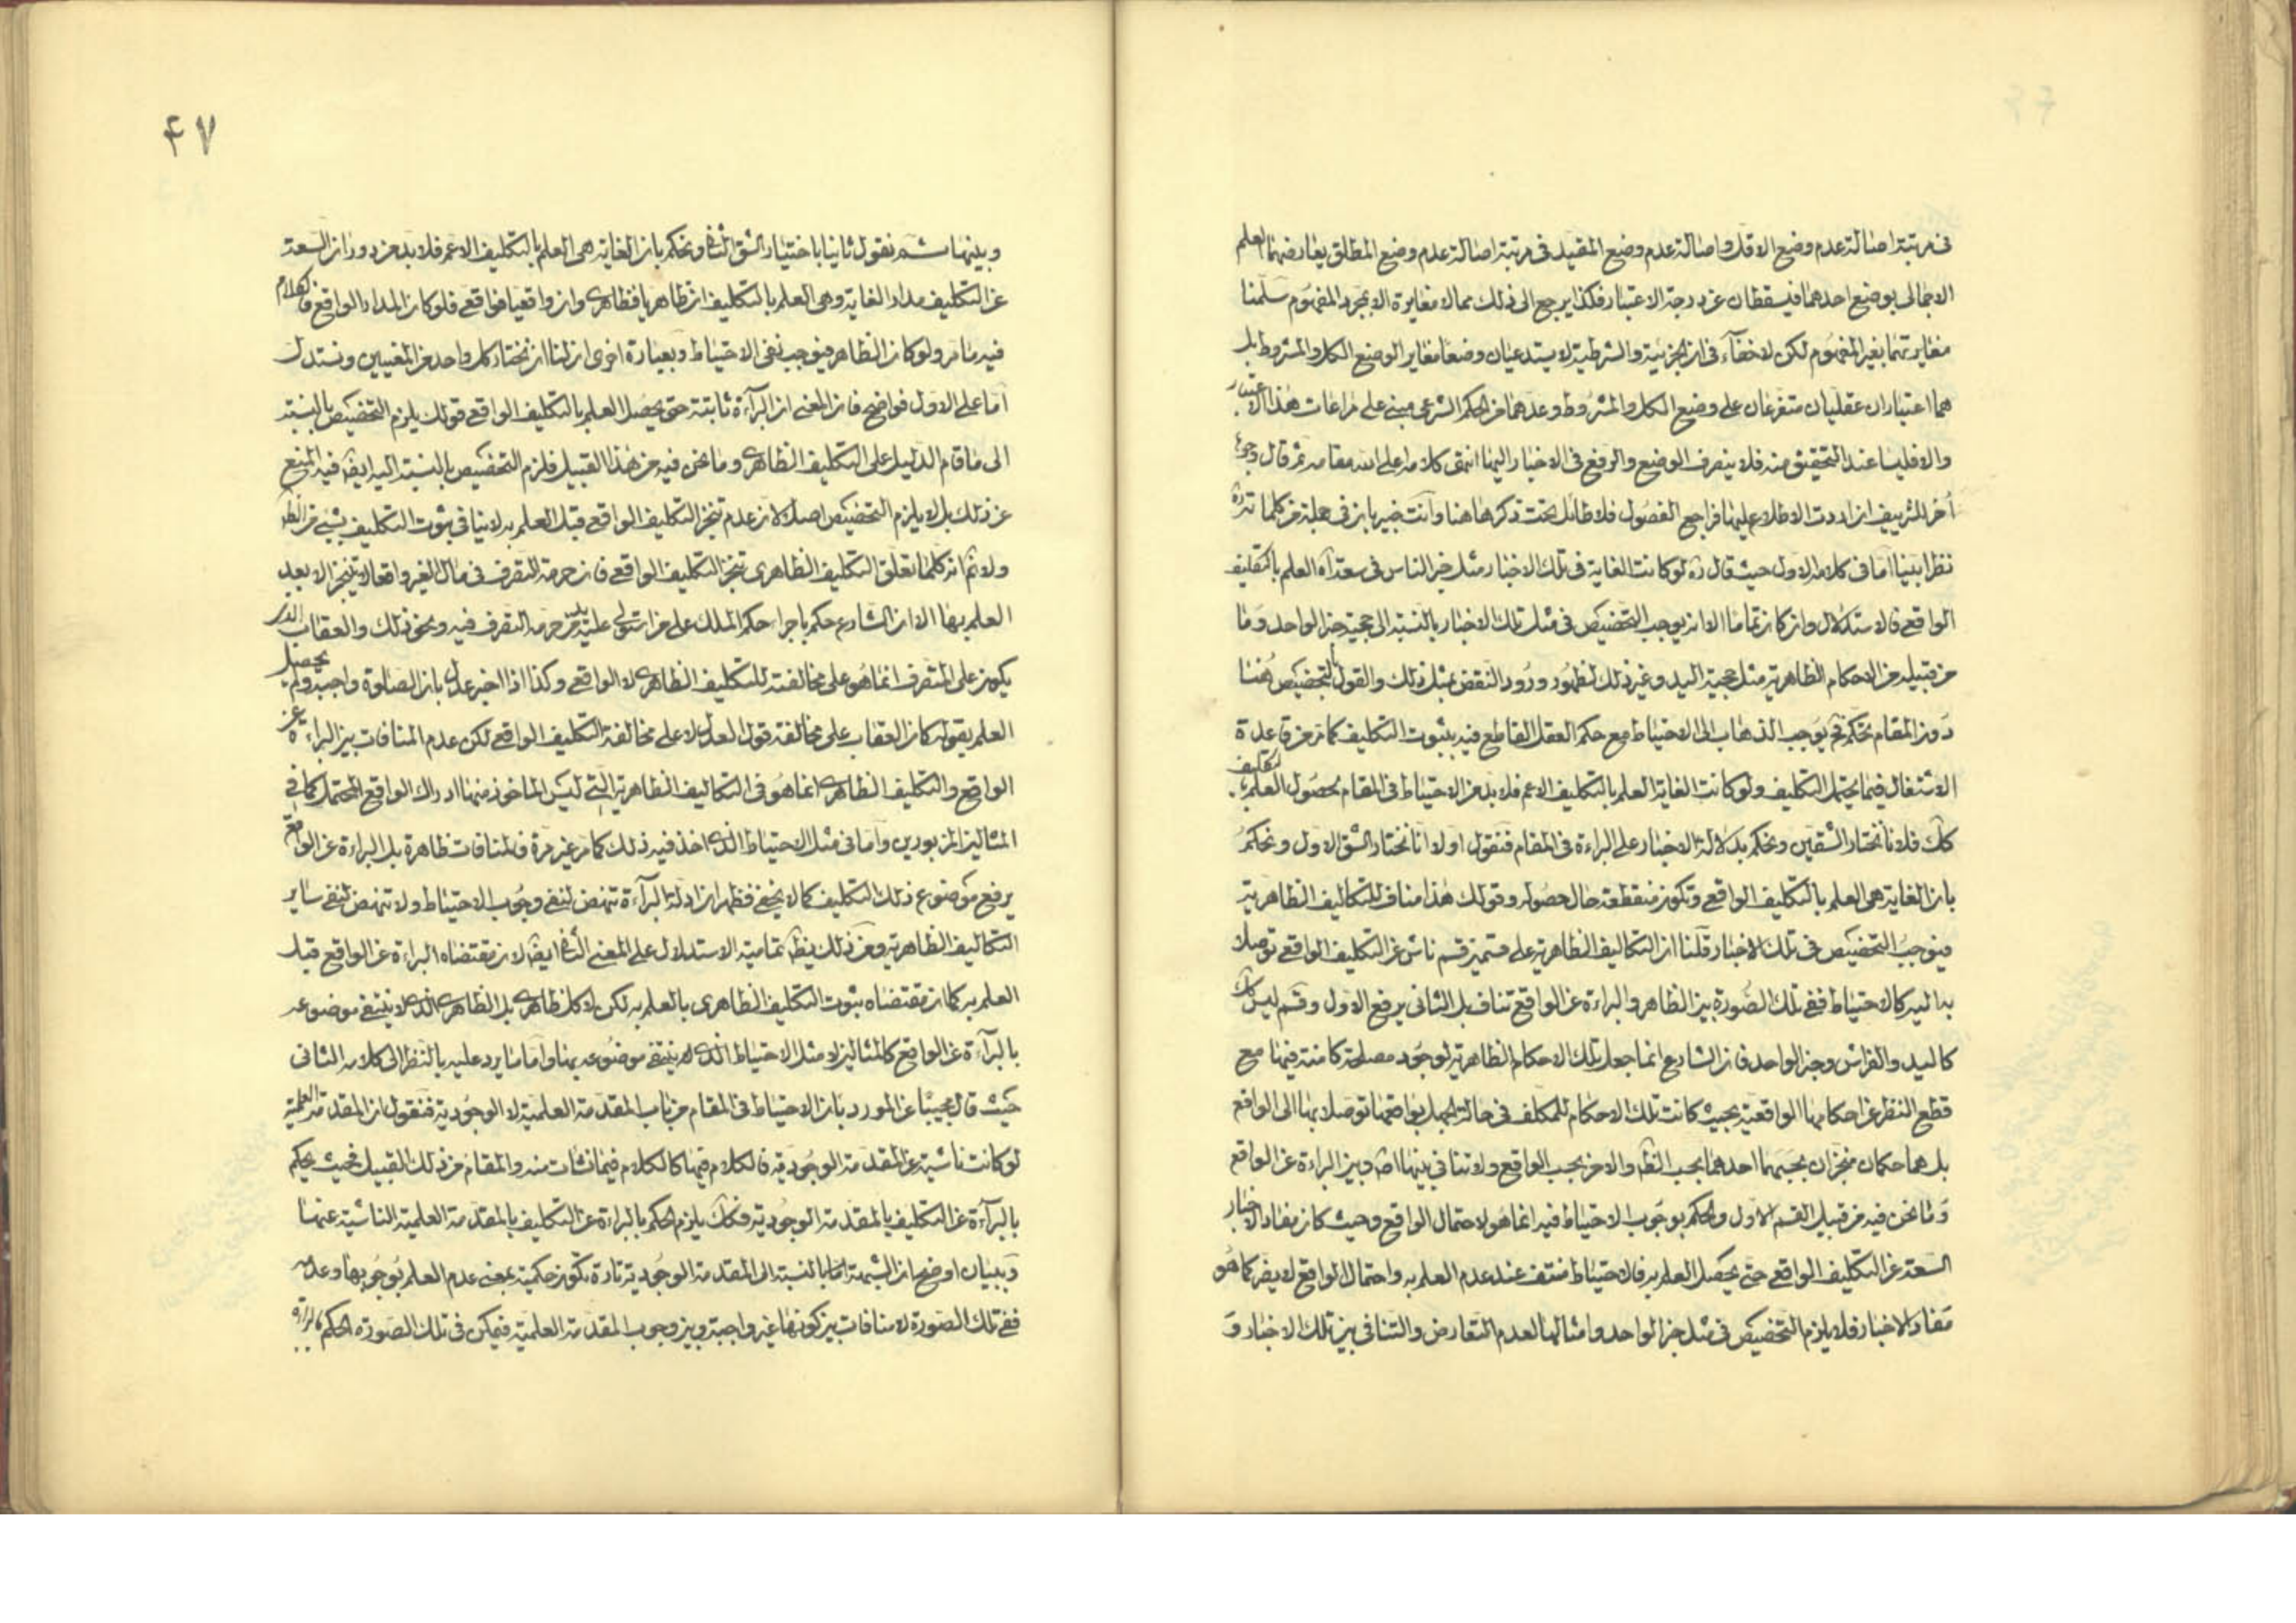 فى مرتبة اصالة عدم وضع الاقل واصالة عدم وضع المقيد فى مرتبة اصالة عدم وضع المطلق يعارضهما العلم
الاجمالى بوضع احدهما فيسقطان عن درجة الاعتبار فكذا يرجع الى ذلك مما لا مغايرة الا بمجرد المفهوم سلمنا
مغايرتهما بغير المفهوم لكن لا خفآء فى ان الجزئية والشرطية لا يستدعيان وضعا مغاير الوضع الكل والمشروط بل
هما اعتباران عقليان متفرعان على وضع الكل والمشروط وعدهما من الحكم الشرعى مبنى على مراعات هذا الاعتبار
والا فليسا عند التحقيق منه فلا ينصرف الوضع والرفع فى الاخبار اليهما انتهى كلامه اعلى الله مقامه ثم قال وجوه
أخر للتزييف ان اردت الاطلاع عليها فراجع الفصول فلا طائل تحت ذكرها هنا وانت خبير بان فى جملة من كلماته ره
نظرا بينا اما فى كلامه الاول حيث قال ره لو كانت الغاية فى تلك الاخبار مثل خبر الناس فى سعة آه العلم بالتكليف
الواقعى فالاستدلال وان كان تماما الا انه يوجب التخصيص فى مثل تلك الاخبار بالنسبة الى حجية خبر الواحد وما
من قبيله من الاحكام الظاهرية مثل حجية اليد وغير ذلك لظهور ورود النقض بمثل ذلك والقول بالتخصيص هنا
دون المقام تحكم فح يوجب الذهاب الى الاحتياط مع حكم العقل القاطع فيه بثبوت التكليف كما مر من قاعدة
الاشتغال فيما يحتمل التكليف ولو كانت الغاية العلم بالتكليف الاعم فلا بد من الاحتياط فى المقام بحصول العلم بالتكليف
كك فلانا نختار الشقين ونحكم بدلالة الاخبار على البراءة فى المقام فنقول اولا انا نختار الشق الاول ونحكم
بان الغاية هى العلم بالتكليف الواقعى وتكون منقطعة حال حصوله وقولك هذا مناف للتكاليف الظاهرية
فيوجب التخصيص فى تلك الاخبار قلنا ان التكاليف الظاهرية على قسمين قسم ناش عن التكليف الواقعى توصلا
به اليه كالاحتياط ففى تلك الصورة بين الظاهر والبراءة عن الواقع تناف بل الثانى يرفع الاول وقسم ليس كك
كاليد والفراش وخبر الواحد فان الشارع انما جعل تلك الاحكام الظاهرية لوجود مصلحة كامنة فيها مع
قطع النظر عن احكامها الواقعية بحيث كانت تلك الاحكام للمكلف فى حالة الجهل بواقعها توصلا بها الى الواقع
بل هما حكمان منجزان بحسبهما احدهما بحسب الظ والاخر بحسب الواقع ولا تنافى بينهما اصلا وبين البراءة عن الواقع
وما نحن فيه من قبيل القسم الاول والحكم بوجوب الاحتياط فيه انما هو لاحتمال الواقع وحيث كان مفاد الاخبار
السعة عن التكليف الواقعى حتى يحصل العلم به فالاحتياط منتف عند عدم العلم به واحتمال الواقع لا يضر كما هو
مفاد الاخبار فلا يلزم التخصيص فى مثل خبر الواحد وامثالها لعدم التعارض والتنافى بين تلك الاخبار و
۴۷
وبينها ثم نقول ثانيا باختيار الشق الثانى ونحكم بان الغاية هى العلم بالتكليف الاعم فلا بد من دوران السعة
عن التكليف مدار الغاية وهى العلم بالتكليف ان ظاهريا فظاهرى وان واقعيا فواقعى فلو كان المدار الواقع فالكلام
فيه ما مر ولو كان الظاهر فيوجب نفى الاحتياط وبعبارة اخرى ان لنا ان نختار كل واحد من المعنيين ونستدل
اما على الاول فواضح فان المعنى ان البرآءة ثابتة حتى يحصل العلم بالتكليف الواقعى قولك يلزم التخصيص بالنسبة
الى ما قام الدليل على التكليف الظاهرى وما نحن فيه من هذا القبيل فلزم التخصيص بالنسبة اليه ايض فيه المنع
عن ذلك بل لا يلزم التخصيص اصلا لان عدم تنجز التكليف الواقعى قبل العلم به لا ينافى ثبوت التكليف بشىء من الظ
ولا ثم انه كلما تعلق التكليف الظاهرى تنجز التكليف الواقعى فان حرمة التصرف فى مال الغير واقعا لا يتنجز الا بعد
العلم بها الا ان الشارع حكم باجراء حكم الملك على من استولى عليه من حرمة التصرف فيه ونحو ذلك والعقاب الذى
يكون على المتصرف انما هو على مخالفته للتكليف الظاهرى لا الواقعى وكذا اذا اخبر عدل بان الصلوة واجبة ولم يحصل
العلم بقوله كان العقاب على مخالفة قول العدل لا على مخالفة التكليف الواقعى لكن عدم المنافات بين البراءة عن
الواقع والتكليف الظاهرى انما هو فى التكاليف الظاهرية التى ليس الماخوذ منها ادراك الواقع المحتمل كما فى
المثالين المزبورين واما فى مثل الاحتياط الذى اخذ فيه ذلك كما مر غير مرة فالمنافات ظاهرة بل البراءة عن الواقع
يرفع موضوع ذلك التكليف كما لا يخفى فظهر ان ادلة البرآءة تنهض لنفى وجوب الاحتياط ولا تنهض لنفى ساير
التكاليف الظاهرية ومن ذلك يظ تمامية الاستدلال على المعنى الثانى ايض لان مقتضاه البراءة عن الواقع قبل
العلم به كما ان مقتضاه ثبوت التكليف الظاهرى بالعلم به لكن لا كل ظاهرى بل الظاهرى الذى لا ينتفى موضوعه
بالبرآءة عن الواقع كالمثالين لا مثل الاحتياط الذى ينتفى موضوعه بها واما ما يرد عليه بالنظر الى كلامه الثانى
حيث قال مجيبا عن المورد بان الاحتياط فى المقام من باب المقدمة العلمية لا الوجودية فنقول ان المقدمة العلمية
لو كانت ناشية عن المقدمة الوجودية فالكلام فيها كالكلام فيما نشات منه والمقام من ذلك القبيل فحيث يحكم
بالبرآءة عن التكليف بالمقدمة الوجودية فكك يلزم الحكم بالبراءة عن التكليف بالمقدمة العلمية الناشية عنها
وببيان اوضح ان الشبهة اما بالنسبة الى المقدمة الوجودية تارة تكون حكمية بمعنى عدم العلم بوجوبها وعدمه
ففى تلك الصورة لا منافات بين كونها غير واجبة وبين وجوب المقدمة العلمية فيمكن فى تلك الصورة الحكم بالبراءة